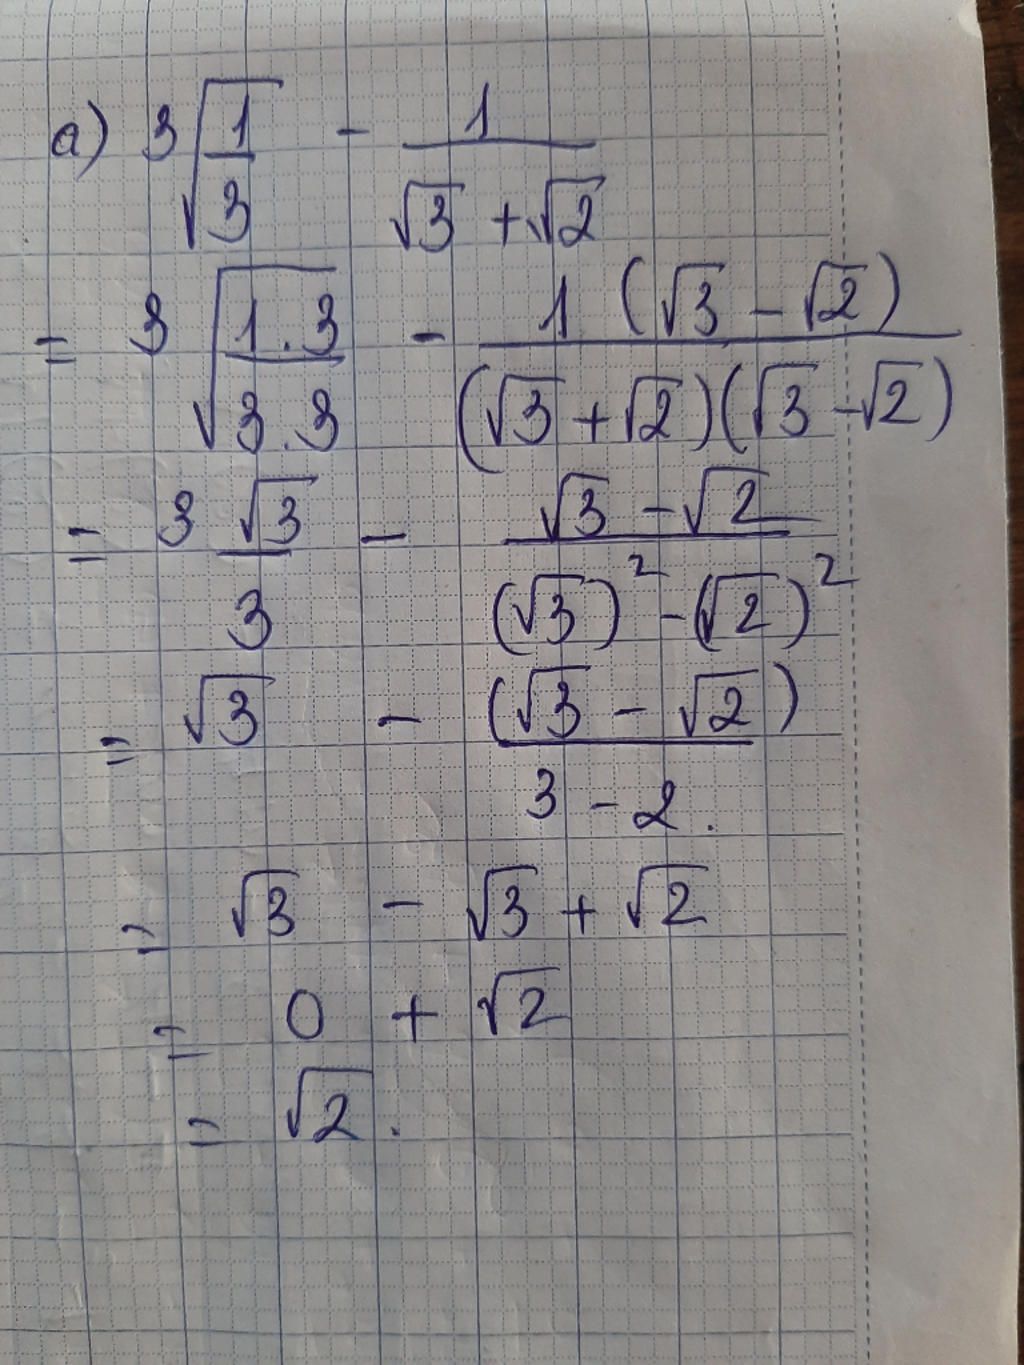 a) 3√(1/3) - 1/(√3 + √2)
= 3√((1.3)/(3.3)) - 1(√3 - √2)/((√3 + √2)(√3 - √2))
= 3 √3/3 - (√3 - √2)/((√3)² - (√2)²)
= √3 - (√3 - √2)/(3 - 2).
= √3 - √3 + √2
= 0 + √2
= √2.